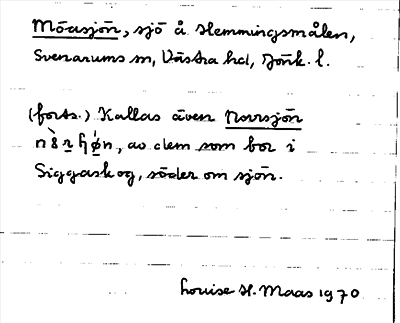 Moasjön, sjö å Hemmingsmålen,
Svenarums sn, Västra hd, Jönk. l.
(forts.) Kallas även Norrsjön
av dem som bor i
Siggaskog, söder om sjön.
Louise H. Maas 1970